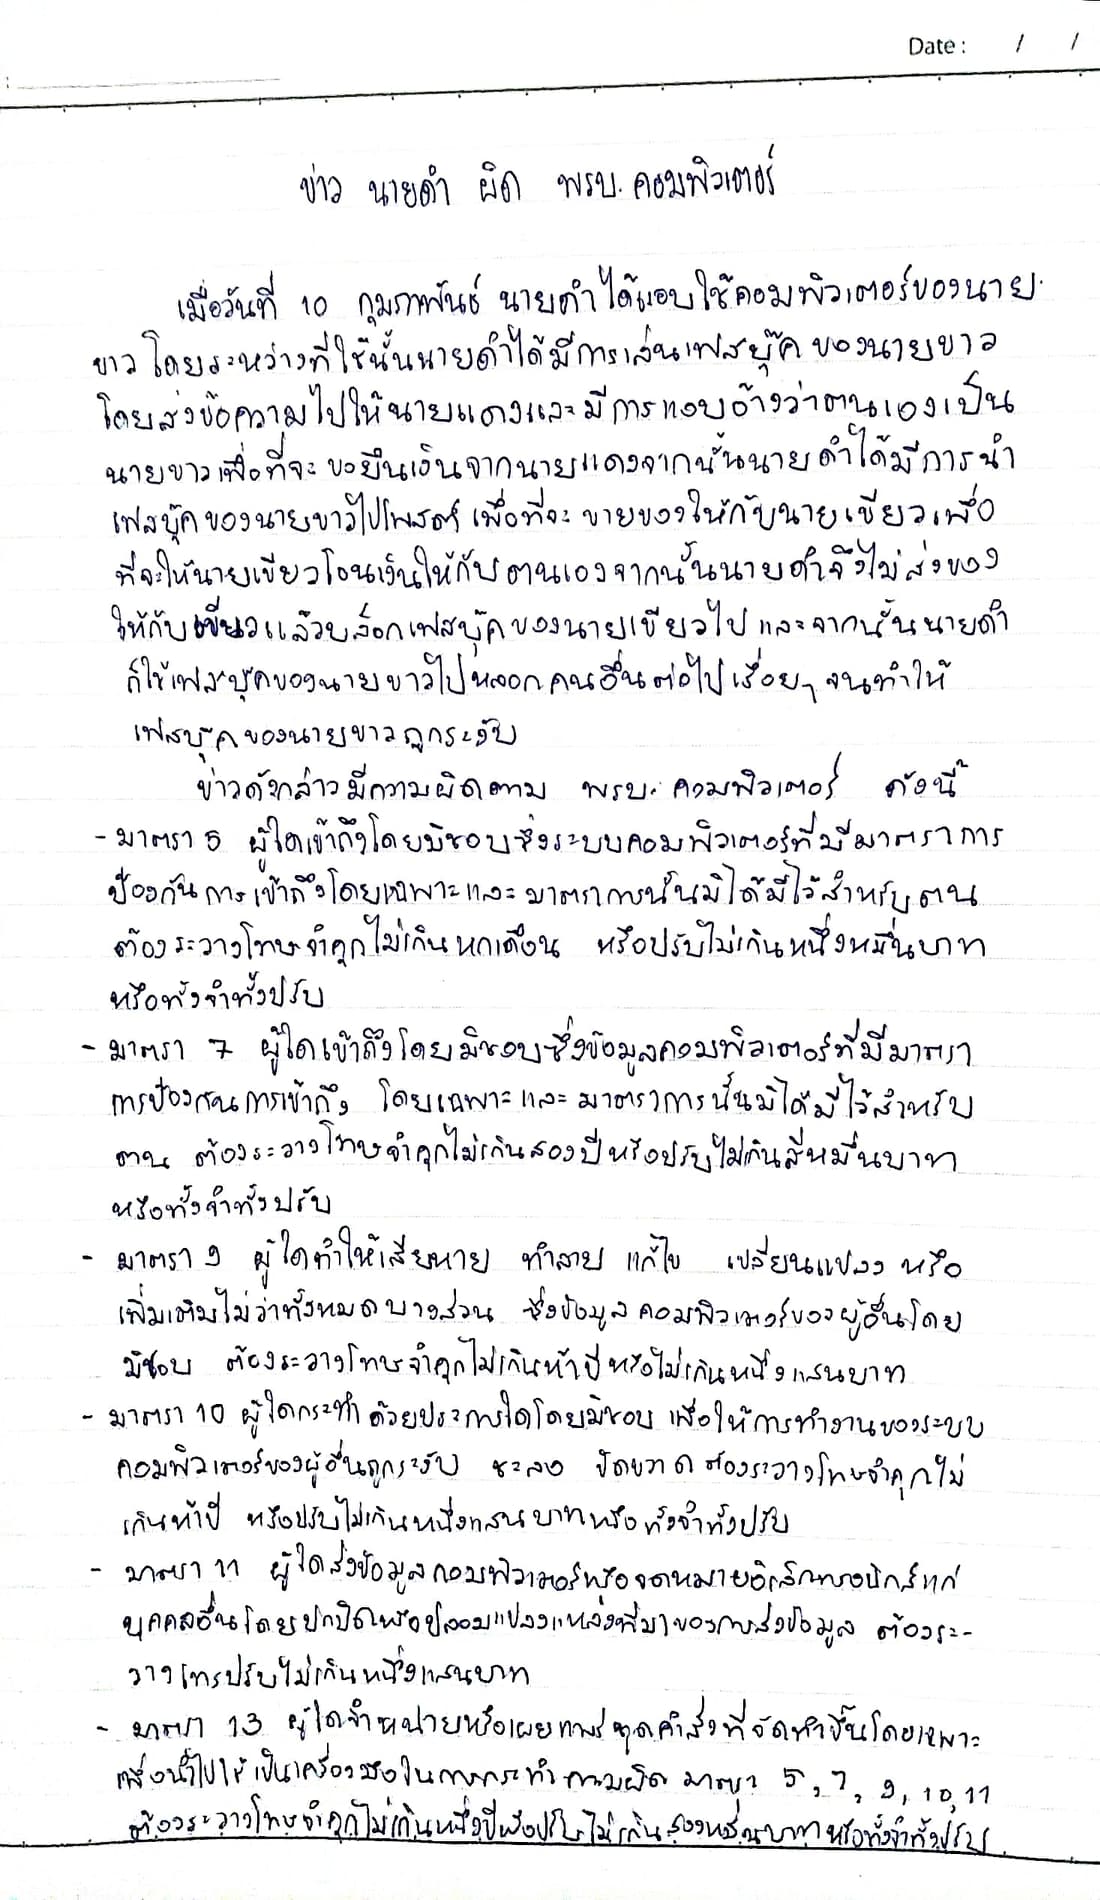 Date : / /
ข่าว นายดำ ผิด พรบ. คอมพิวเตอร์
เมื่อวันที่ 10 กุมภาพันธ์ นายดำได้แอบใช้คอมพิวเตอร์ของนาย
ขาว โดยระหว่างที่ใช้นั้นนายดำได้มีการเล่นเฟสบุ๊คของนายขาว
โดยส่งข้อความไปให้นายแดงและมีการแอบอ้างว่าตนเองเป็น
นายขาวเพื่อที่จะขอยืมเงินจากนายแดงจากนั้นนายดำได้มีการนำ
เฟสบุ๊คของนายขาวไปโพสต์เพื่อที่จะขายของให้กับนายเขียวเพื่อ
ที่จะให้นายเขียวโอนเงินให้กับตนเองจากนั้นนายดำจึงไม่ส่งของ
ให้กับเขียวแล้วบล็อกเฟสบุ๊คของนายเขียวไป และจากนั้นนายดำ
ก็ใช้เฟสบุ๊คของนายขาวไปหลอกคนอื่นต่อไปเรื่อยๆ จนทำให้
เฟสบุ๊คของนายขาวถูกระงับ
ข่าวดังกล่าวมีความผิดตาม พรบ. คอมพิวเตอร์ ดังนี้
- มาตรา 5 ผู้ใดเข้าถึงโดยมิชอบซึ่งระบบคอมพิวเตอร์ที่มีมาตราการ
ป้องกันการเข้าถึงโดยเฉพาะและมาตราการนั้นมิได้มีไว้สำหรับตน
ต้องระวางโทษจำคุกไม่เกินหกเดือน หรือปรับไม่เกินหนึ่งหมื่นบาท
หรือทั้งจำทั้งปรับ
- มาตรา 7 ผู้ใดเข้าถึงโดยมิชอบซึ่งข้อมูลคอมพิวเตอร์ที่มีมาตรา
การป้องกันการเข้าถึง โดยเฉพาะและมาตราการนั้นมิได้มีไว้สำหรับ
ตน ต้องระวางโทษจำคุกไม่เกินสองปีหรือปรับไม่เกินสี่หมื่นบาท
หรือทั้งจำทั้งปรับ
- มาตรา 9 ผู้ใดทำให้เสียหาย ทำลาย แก้ไข เปลี่ยนแปลง หรือ
เพิ่มเติมไม่ว่าทั้งหมดบางส่วน ซึ่งข้อมูลคอมพิวเตอร์ของผู้อื่นโดย
มิชอบ ต้องระวางโทษจำคุกไม่เกินห้าปีหรือไม่เกินหนึ่งแสนบาท
- มาตรา 10 ผู้ใดกระทำด้วยประการใดโดยมิชอบ เพื่อให้การทำงานของระบบ
คอมพิวเตอร์ของผู้อื่นถูกระงับ ชะลอ ขัดขวาง ต้องระวางโทษจำคุกไม่
เกินห้าปี หรือปรับไม่เกินหนึ่งแสนบาทหรือทั้งจำทั้งปรับ
- มาตรา 11 ผู้ใดส่งข้อมูลคอมพิวเตอร์หรือจดหมายอิเล็กทรอนิกส์แก่
บุคคลอื่นโดยปกปิดหรือปลอมแปลงแหล่งที่มาของการส่งข้อมูล ต้องระ-
วางโทษปรับไม่เกินหนึ่งแสนบาท
- มาตรา 13 ผู้ใดจำหน่ายหรือเผยแพร่ชุดคำสั่งที่จัดทำขึ้นโดยเฉพาะ
เพื่อนำไปใช้เป็นเครื่องมือในการกระทำความผิด มาตรา 5, 7, 9, 10, 11
ต้องระวางโทษจำคุกไม่เกินหนึ่งปีหรือปรับไม่เกินสองหมื่นบาทหรือทั้งจำทั้งปรับ